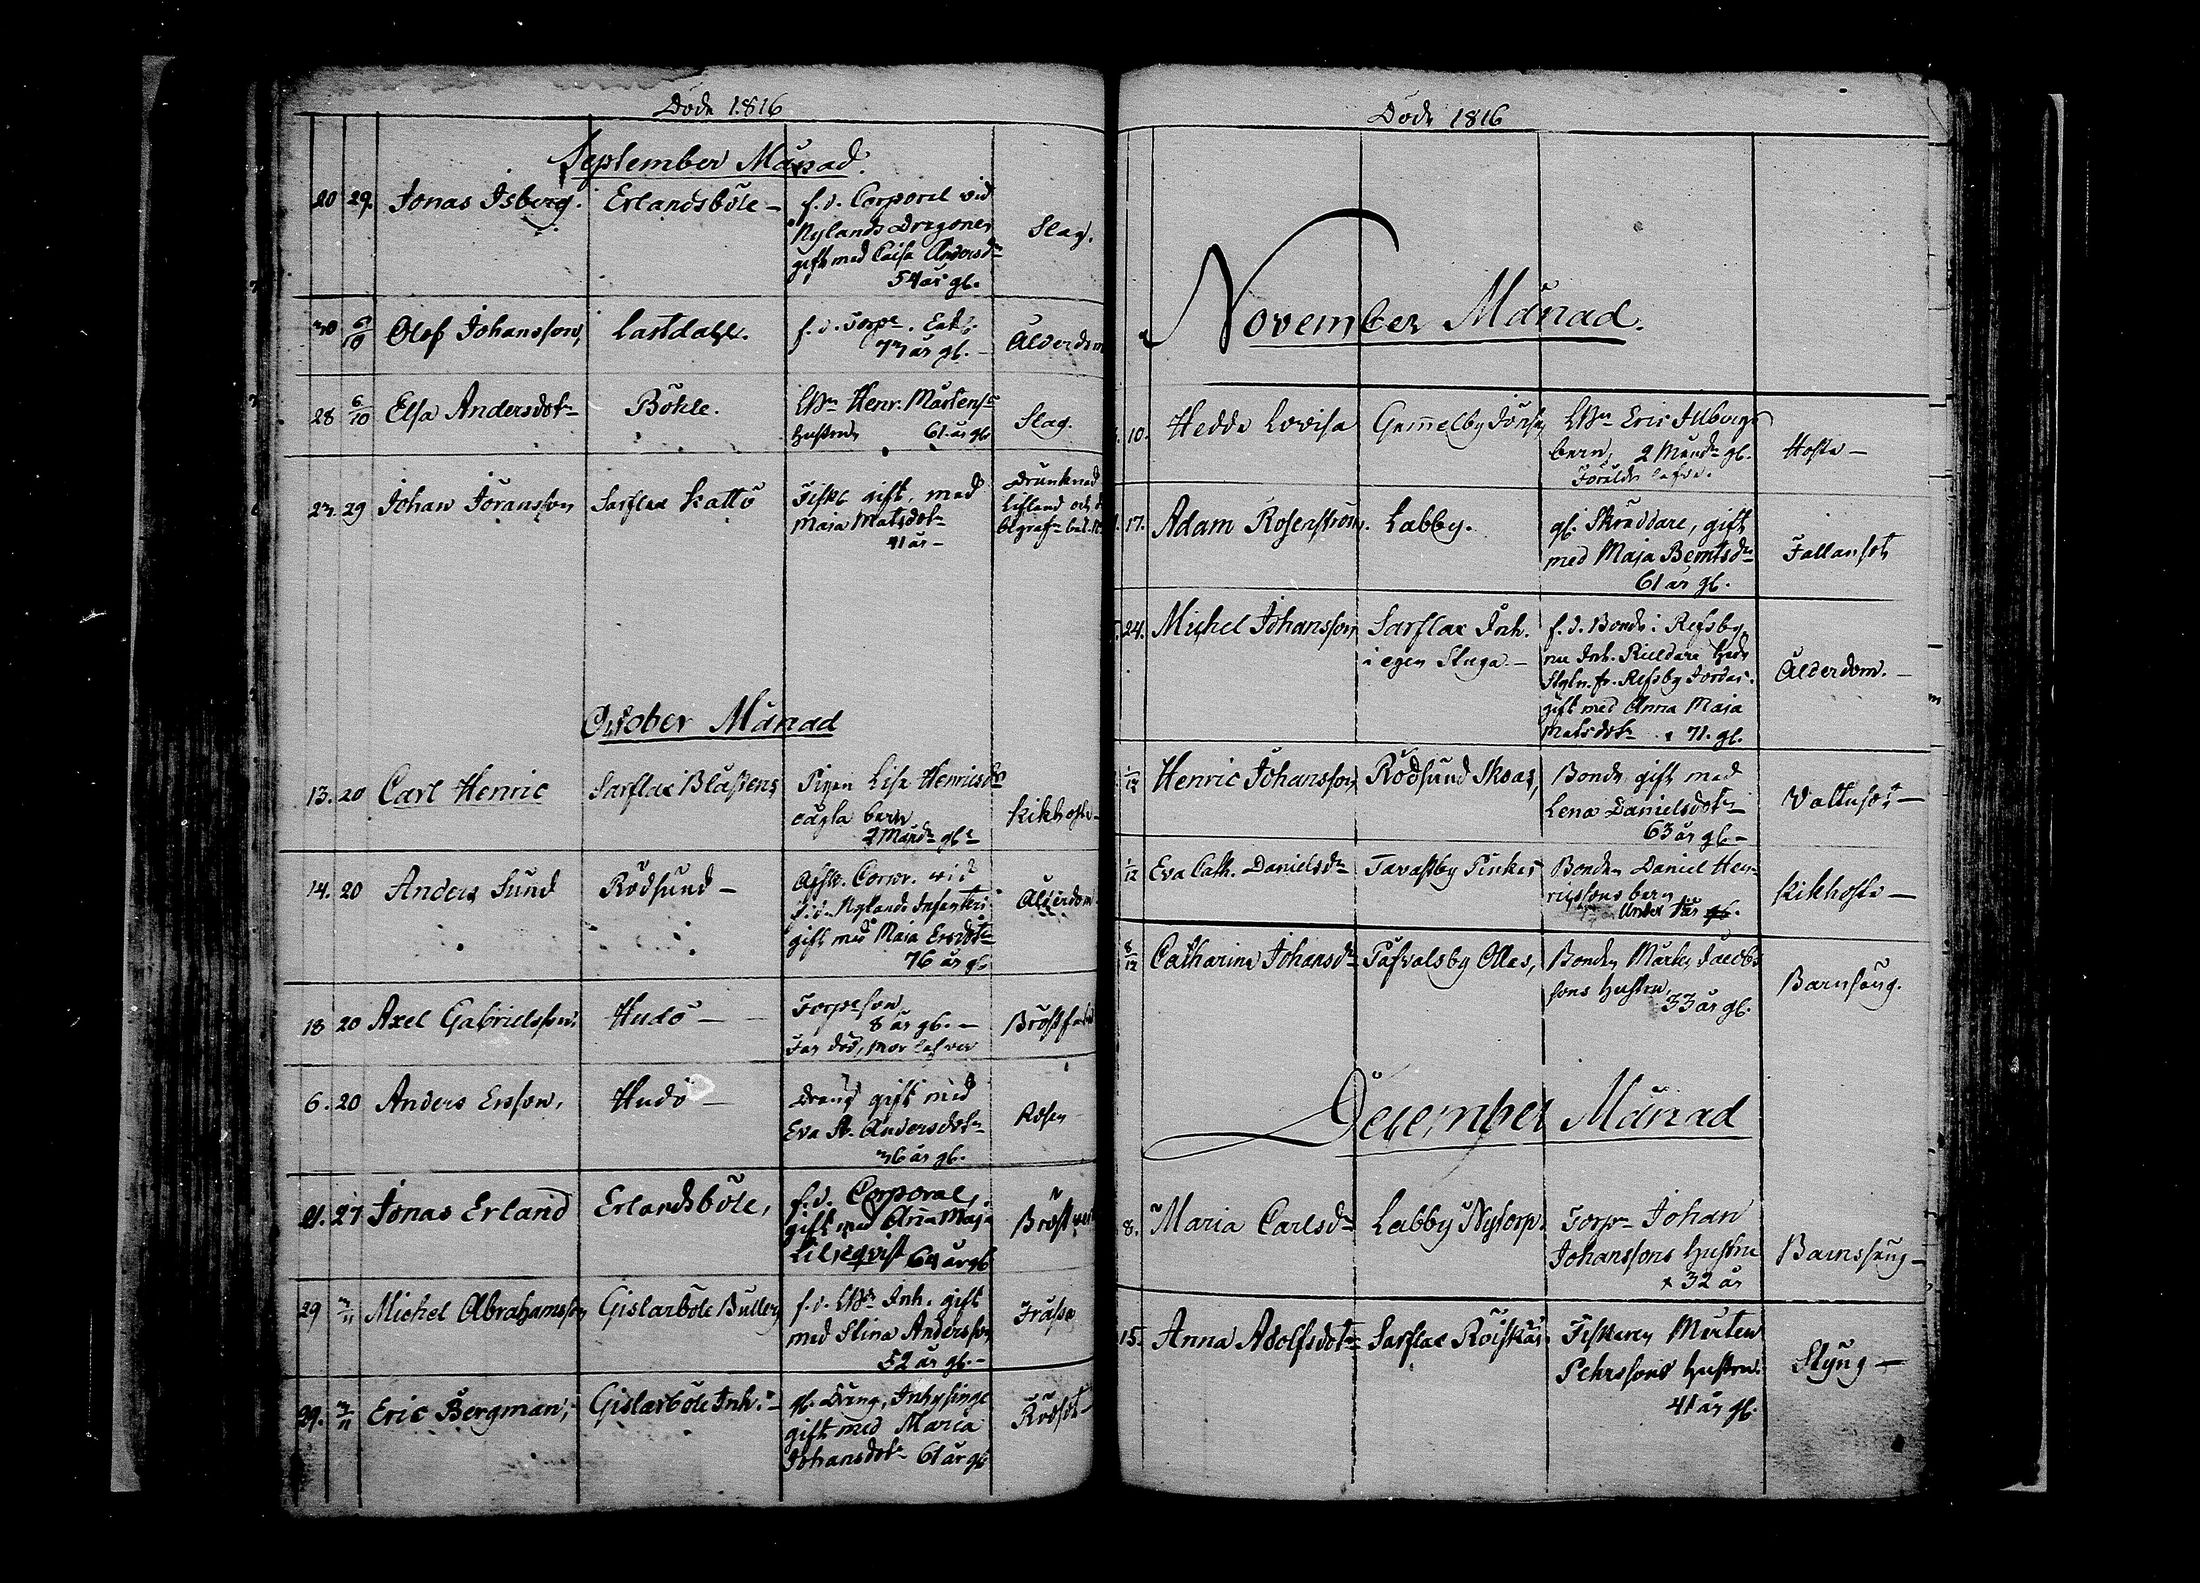 Döde 1816
September Månad.
20 29. Jonas Isberg. Erlandsböle – f. d. Corporal vid
Nylands Dragoner
gift med Caisa Andersdr
54 år gl.
Slag.
30 6/10 Olof Johansson, Lartdahl. f. d. Torpr. Enkl.
77 år gl. –
Ålderdom
28 6/10 Elsa Andersdotr Böhle. LBn Henr. Mårtenss
hustru 61. år gl.
Slag.
23. 29 Johan Joransson Sarflax Kattö Fisk. gift med
Maja Matsdotr
41 år –
Drunknad
begrafn
October Månad
13. 20 Carl Henric Sarflax Blassens Pigan Lisa Henricsdr
oägta barn
2 Måndr gl.
Kikhosta –
14. 20 Anders Sund Rödsund – Afsk. Corpr. vid
f. d. Nylands Infanteri
gift med Maja Ersdotr
76 år gl.
Ålderdom
18 20 Axel Gabrielsson. Hudö – Torpeson
8 år gl. –
Far död, mor lefver
Bröstfeber
6. 20 Anders Ersson, Hudö – Dräng gift med
Eva St. Andersdotr
36 år gl.
Rosen
21. 27 Jonas Erland Erlandsböle, f. d. Corporal,
gift med Anna Maja
Liljeqvist 64 år gl.
Bröst
29 3/11 Michel Abrahamsson Gislarböle Buller f. d. LBr Inh. gift
med Stina Andersson
52 år gl. –
Fråssa
29. 3/11 Eric Bergman, Gislarböle Inh. – gl. Dräng, Inhysinge
gift med Maria
Johansdotr 61 år gl.
Rödsot –
Döde 1816
November Månad.
10. Hedda Lovisa Gammelby Jönses LBn Eric Illbergs
barn, 2 Måndr gl.
Föräldr. lefva.
Hosta –
17. Adam Rosenström. Labby. gl. Skräddare, gift
med Maja Berntsdr
61 år gl.
Fallansot
24. Michel Johansson Sarflax Inh.
i egen Stuga. – f. d. Bonde i Refsby
nu Inh.
fr. Refsby
gift med Anna Maja
Matsdotr 71. gl.
Ålderdom. –
1/12 Henric Johansson Rödsund Skoas, Bonde gift med
Lena Danielsdotr –
63 år gl. –
Vattusot –
1/12 Eva Cath. Danielsdr Tavastby Pinkas Bonden Daniel Hen-
ricssons barn
under 1 år gl.
Kikhosta –
8/12 Catharina Johansdr Påfvalsby Olles, Bonden Mårten Jacobs
sons hustru,
33 år gl.
Barnsäng.
December Månad
8. Maria Carlsdr Labby Nytorp. Torpr Johan
Johanssons hustru
32 år
Barnsäng –
15. Anna Adolfsdotr Sarflax Röiskär Fiskaren Mårten
Pehrssons hustru.
41 år gl.
Styng –